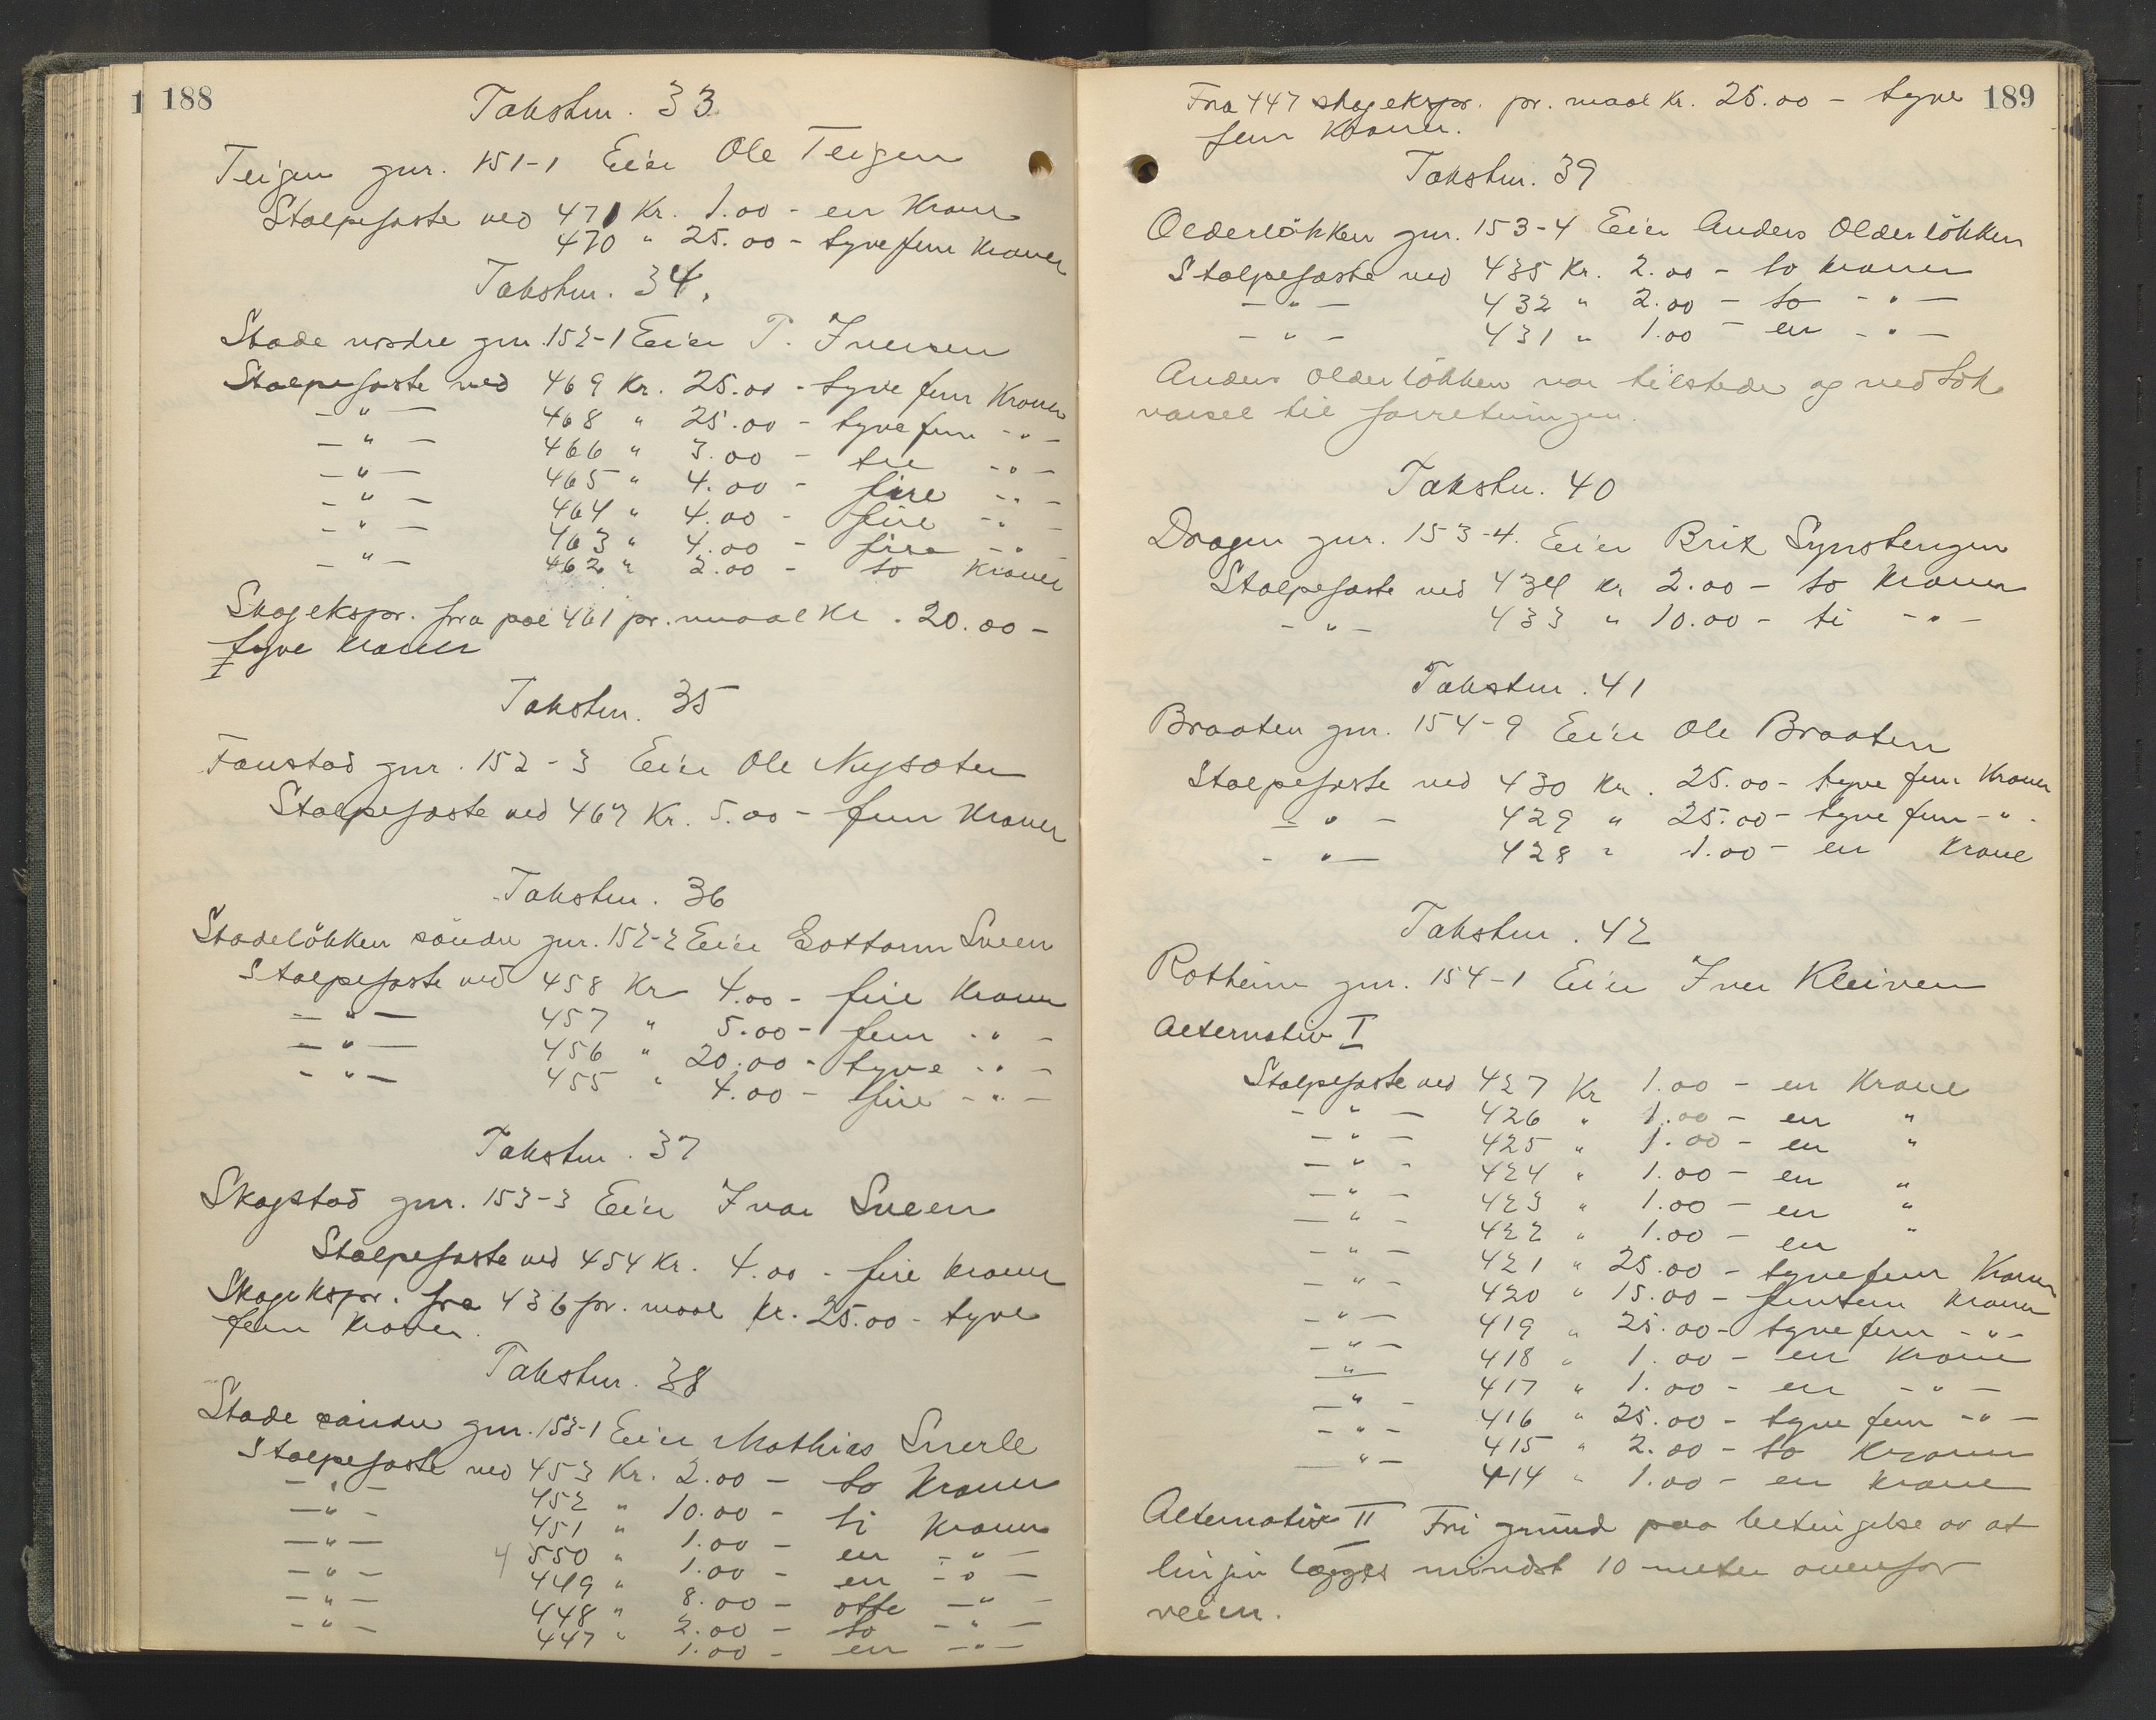 188
Takstnr. 33
Teigen gnr. 151-1 Eier Ole Teigen
Stolpefæste ved 471 Kr. 1.00 - en Krone
470 " 25.00 - tyvefem Kroner
Takstnr. 34.
Stade nordre gnr. 152-1 Eier P. Iversen
Stolpefæste ved 469 Kr. 25.00 - tyve fem Kroner
- " - 468 " 25.00 - tyve fem - " -
- " - 466 " 3.00 - tre - " -
- " - 465 " 4.00 - fire - " -
- " - 464 " 4.00 - fire - " -
- " - 463 " 4.00 - fire - " -
- " - 462 " 2.00 - to Kroner
Skogekspr. fra pæl 461 pr. maal Kr. 20.00 -
tyve Kroner
Takstnr. 35
Faustad gnr. 152-3 Eier Ole Nysæter
Stolpefæste ved 467 Kr. 5.00 - fem Kroner
Takstnr. 36
Stadeløkken søndre gnr. 152-2 Eier Gottorm Sveen
Stolpefæste ved 458 Kr 4.00 - fire Kroner
- " - 457 " 5.00 - fem - " -
- " - 456 " 20.00 - tyve - " -
- " - 455 " 4.00 - fire - " -
Takstnr. 37
Skogstad gnr. 153-3 Eier Ivar Sveen
Stolpefæste ved 454 Kr. 4.00 - fire kroner
Skogekspr. fra 436 pr. maal kr. 25.00 - tyve
fem kroner.
Takstnr. 38
Stade søndre gnr. 153-1 Eier Mathias Snerle
Stolpefæste ved 453 Kr. 2.00 - to Kroner
- " - 452 " 10.00 - ti Kroner
- " - 451 " 1.00 - en - " -
- " - 4 550 " 1.00 - en - " -
- " - 449 " 8.00 - otte - " -
- " - 448 " 2.00 - to - " -
- " - 447 " 1.00 - en - " -
189
Fra 447 skogekspr. pr. maal kr. 25.00 - tyve
fem Kroner.
Takstnr. 39
Olderløkken gnr. 153-4 Eier Anders Olderløkken
Stolpefæste ved 435 Kr. 2.00 - to kroner
- " - 432 " 2.00 - to - " -
- " - 431 " 1.00 - en - " -
Anders Olderløkken var tilstede og vedtok
varsel til forretningen.
Takstnr. 40
Dragen gnr. 153-4. Eier Brit Synstengen
Stolpefæste ved 434 kr 2.00 - to Kroner
- " - 433 " 10.00 - ti - " -
Takstnr. 41
Braaten gnr. 154-9 Eier Ole Braaten
Stolpefæste ved 430 Kr. 25.00 - tyve fem Kroner
- " - 429 " 25.00 - tyve fem - " -
- " - 428 " 1.00 - en Krone
Takstnr. 42
Rotheim gnr. 154-1 Eier Iver Kleiven
Alternativ I
Stolpefæste ved 427 Kr 1.00 - en Krone
- " - 426 " 1.00 - en "
- " - 425 " 1.00 - en "
- " - 424 " 1.00 - en "
- " - 423 " 1.00 - en "
- " - 422 " 1.00 - en "
- " - 421 " 25.00 - tyvefem Kroner
- " - 420 " 15.00 - femten Kroner
- " - 419 " 25.00 - tyve fem - " -
- " - 418 " 1.00 - en Krone
- " - 417 " 1.00 - en - " -
- " - 416 " 25.00 - tyve fem - " -
- " - 415 " 2.00 - to Kroner
- " - 414 " 1.00 - en krone
Alternativ II Fri grund paa betingelse av at
linjen lægges mindst 10 meter ovenfor
veien.